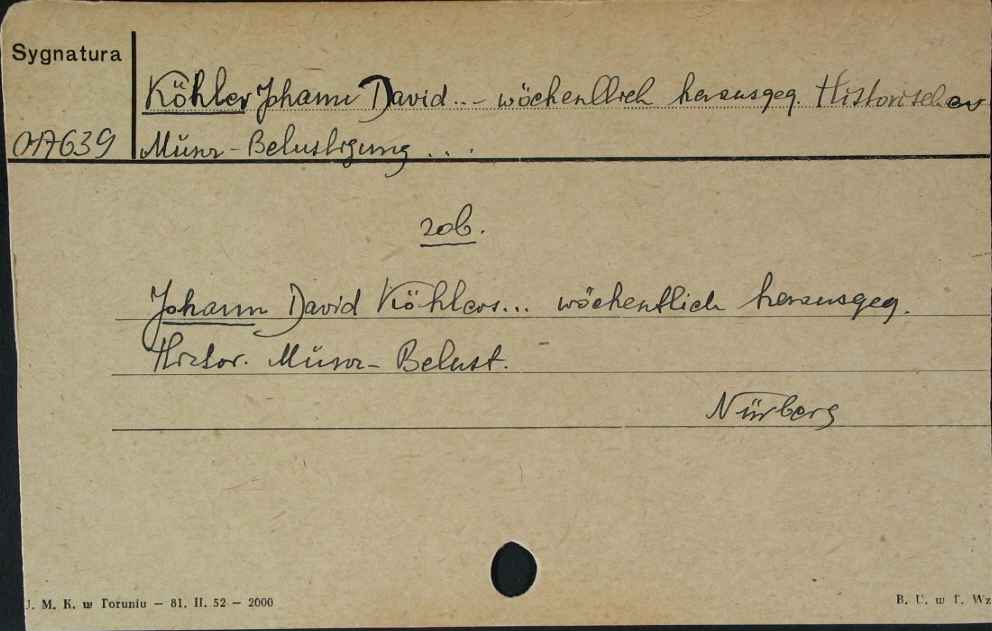 Sygnatura
Köhler Johann David... - wöchentlich herausgeg. Historischer
017639 Münz-Belustigung ...
zob.
Johann David Köhlers... wöchentlich herausgeg.
Histor. Münz-Belust. -
Nürberg
U. M. K. w Toruniu — 81. II. 52 — 2000
B. U. w T. Wz